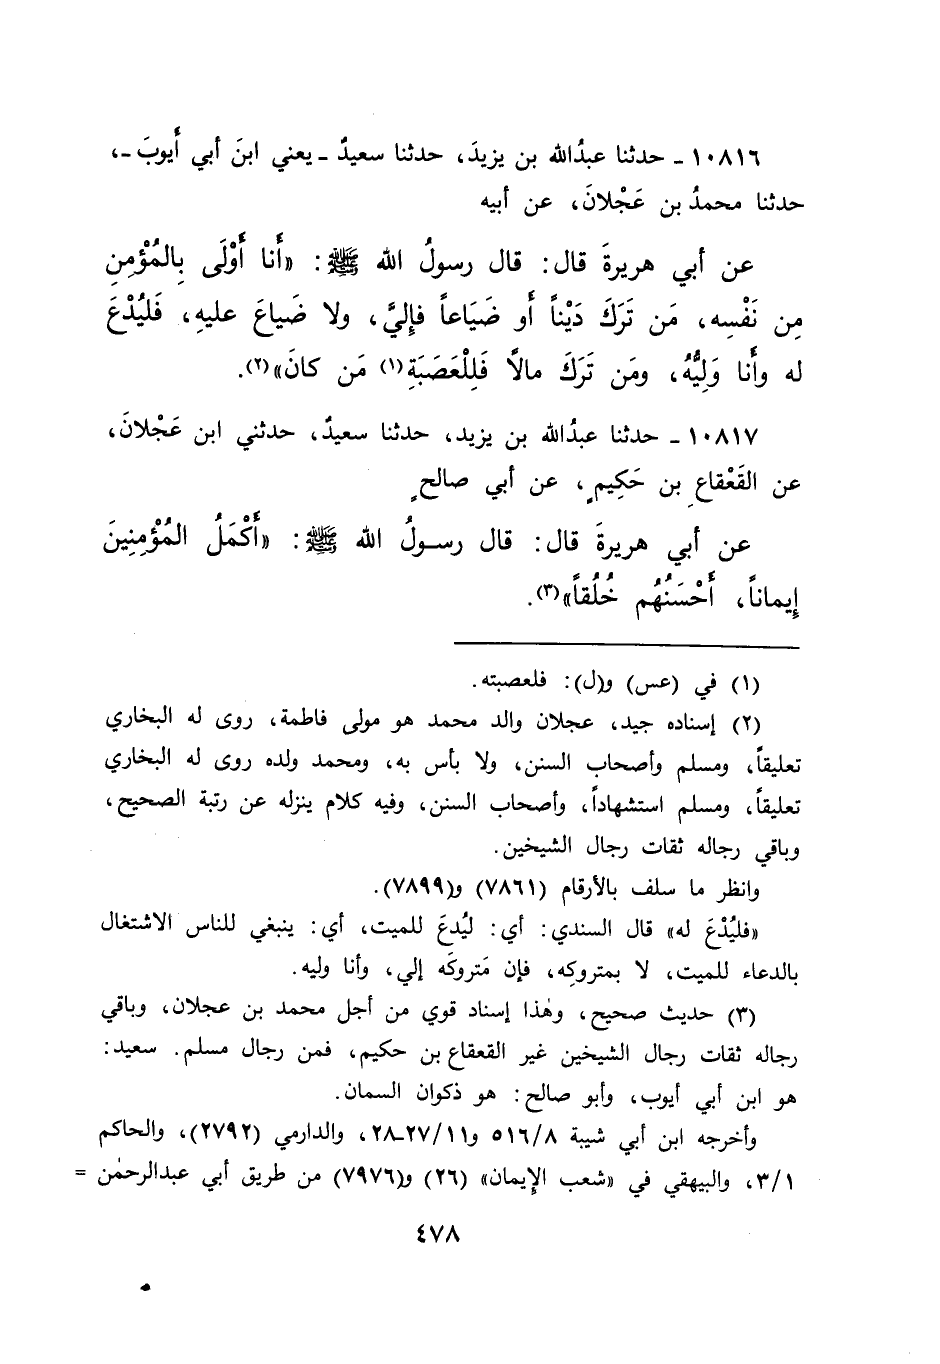 ١٠٨١٦ ـ حدثنا عبدُالله بن يزيدَ، حدثنا سعيدٌ ـ يعني ابنَ أبي أَيوبَ ـ،
حدثنا محمدُ بن عَجْلانَ، عن أبيه
عن أبي هريرةَ قال: قال رسولُ الله ﷺ: «أَنا أَوْلَى بِالمُؤْمِنِ
مِن نَفْسِه، مَن تَرَكَ دَيْناً أَو ضَيَاعاً فإِليَّ، ولا ضَياعَ عليهِ، فَليُدْعَ
له وأَنا وَلِيُّهُ، ومَن تَرَكَ مالاً فَلِلْعَصَبَةِ(١) مَن كانَ»(٢).
١٠٨١٧ ـ حدثنا عبدُالله بن يزيد، حدثنا سعيدٌ، حدثني ابن عَجْلانَ،
عن القَعْقاعِ بن حَكِيمٍ، عن أبي صالحٍ
عن أبي هريرةَ قال: قال رسولُ الله ﷺ: «أَكْمَلُ المُؤْمِنِينَ
إِيماناً، أَحْسَنُهُم خُلُقاً»(٣).
(١) في (عس) و(ل): فلعصبته.
(٢) إسناده جيد، عجلان والد محمد هو مولى فاطمة، روى له البخاري
تعليقاً، ومسلم وأصحاب السنن، ولا بأس به، ومحمد ولده روى له البخاري
تعليقاً، ومسلم استشهاداً، وأصحاب السنن، وفيه كلام ينزله عن رتبة الصحيح،
وباقي رجاله ثقات رجال الشيخين.
وانظر ما سلف بالأرقام (٧٨٦١) و(٧٨٩٩).
«فليُدْعَ له» قال السندي: أي: ليُدعَ للميت، أي: ينبغي للناس الاشتغال
بالدعاء للميت، لا بمتروكِه، فإن مَتروكَه إلي، وأنا وليه.
(٣) حديث صحيح، وهٰذا إسناد قوي من أجل محمد بن عجلان، وباقي
رجاله ثقات رجال الشيخين غير القعقاع بن حكيم، فمن رجال مسلم. سعيد:
هو ابن أبي أيوب، وأبو صالح: هو ذكوان السمان.
وأخرجه ابن أبي شيبة ٥١٦/٨ و٢٧/١١-٢٨، والدارمي (٢٧٩٢)، والحاكم
٣/١، والبيهقي في «شعب الإيمان» (٢٦) و(٧٩٧٦) من طريق أبي عبدالرحمٰن =
٤٧٨